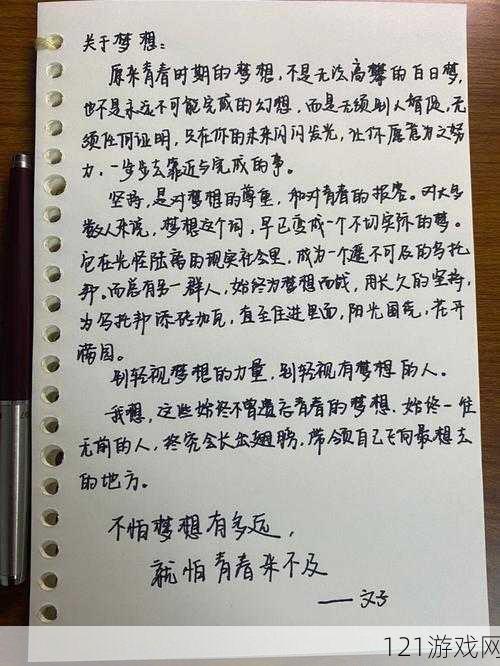 关于梦想：
原来青春时期的梦想，不是无法高攀的白日梦，
也不是永远不可能完成的幻想，而是无须别人督促，无
须任何证明，只在你的未来闪闪发光，让你愿意为之努
力，一步步去靠近与完成的事。
坚持，是对梦想的尊重，和对青春的报答。对大多
数人来说，梦想这个词，早已变成一个不切实际的梦。
它在光怪陆离的现实社会里，成为一个遥不可及的乌托
邦。而总有另一群人，始终为梦想而战，用长久的坚持，
为乌托邦添砖加瓦，直至住进里面，阳光围绕，花开
满园。
别轻视梦想的力量，别轻视有梦想的人。
我想，这些始终不曾遗忘青春的梦想、始终一往
无前的人，终究会长出翅膀，带领自己飞向最想去
的地方。
不怕梦想有多远，
就怕青春来不及
——
121游戏网